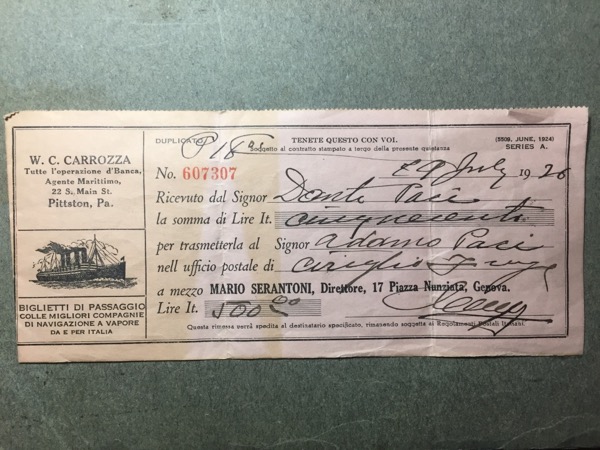 W. C. CARROZZA
Tutte l'operazione d'Banca,
Agente Marittimo,
22 S. Main St.
Pittston, Pa.
BIGLIETTI DI PASSAGGIO
COLLE MIGLIORI COMPAGNIE
DI NAVIGAZIONE A VAPORE
DA E PER ITALIA
DUPLICATO TENETE QUESTO CON VOI. (5509, JUNE, 1924)
Soggetto al contratto stampato a tergo della presente quietanza SERIES A.
No. 607307 29 July 1926
Ricevuto dal Signor Dante Paci
la somma di Lire It. cinquecento
per trasmetterla al Signor Adamo Paci
nell ufficio postale di
a mezzo MARIO SERANTONI, Direttore, 17 Piazza Nunziata, Genova.
Lire It. 500.00
Questa rimessa verrà spedita al destinatario specificato, rimanendo soggetta ai Regolamenti Postali Italiani.